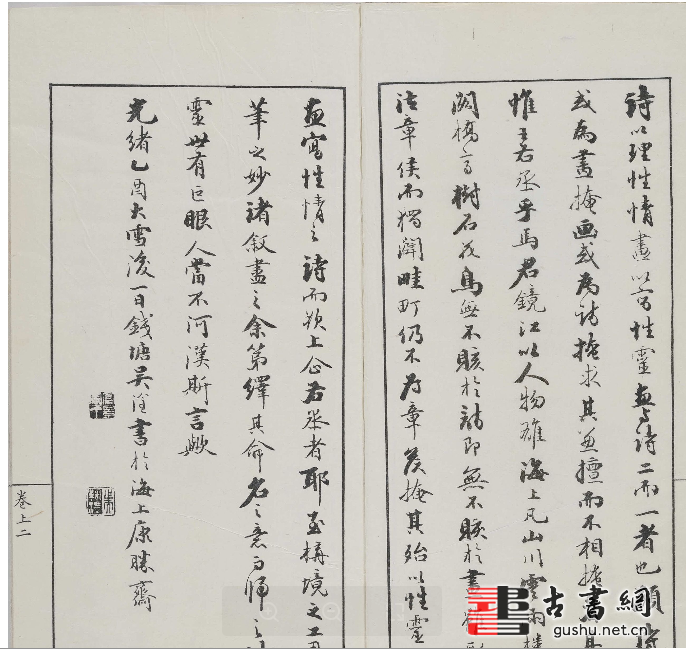 詩以理性情畫以寫性靈畫與詩二而一者也顧
或為畫掩画或為詩掩求其兼擅而不相掩
惟王右丞乎馬君鏡江以人物雄海上凡山川雲雨樓
閣橋亭樹石花鳥無不賅於詩即無不賅於畫
法章侯而獨闢畦町仍不為章侯掩其殆以性靈
畫寫性情之詩而欲上企右丞者耶至構境之工
筆之妙諸敘盡之余第繹其命名之意而歸之
靈世有巨眼人當不河漢斯言歟
光緒乙酉大雪後一日錢塘吳淦書於海上康勝齋
卷上二
古書網
gushu.net.cn